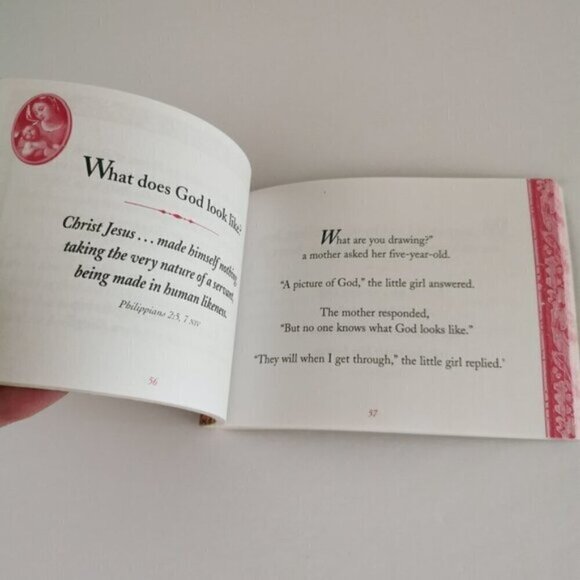 What does God look like?
Christ Jesus ... made himself nothing,
taking the very nature of a servant,
being made in human likeness.
Philippians 2:5, 7 NIV
56
What are you drawing?"
a mother asked her five-year-old.
"A picture of God," the little girl answered.
The mother responded,
"But no one knows what God looks like."
"They will when I get through," the little girl replied.
57